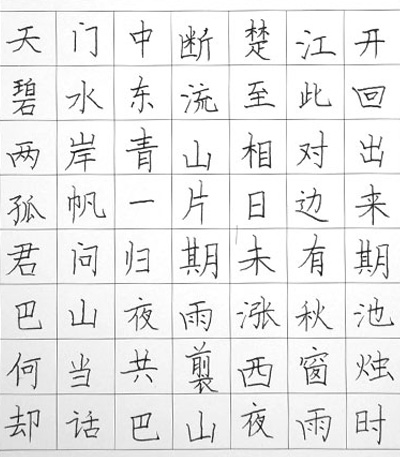 天门中断楚江开
碧水东流至此回
两岸青山相对出
孤帆一片日边来
君问归期未有期
巴山夜雨涨秋池
何当共剪西窗烛
却话巴山夜雨时